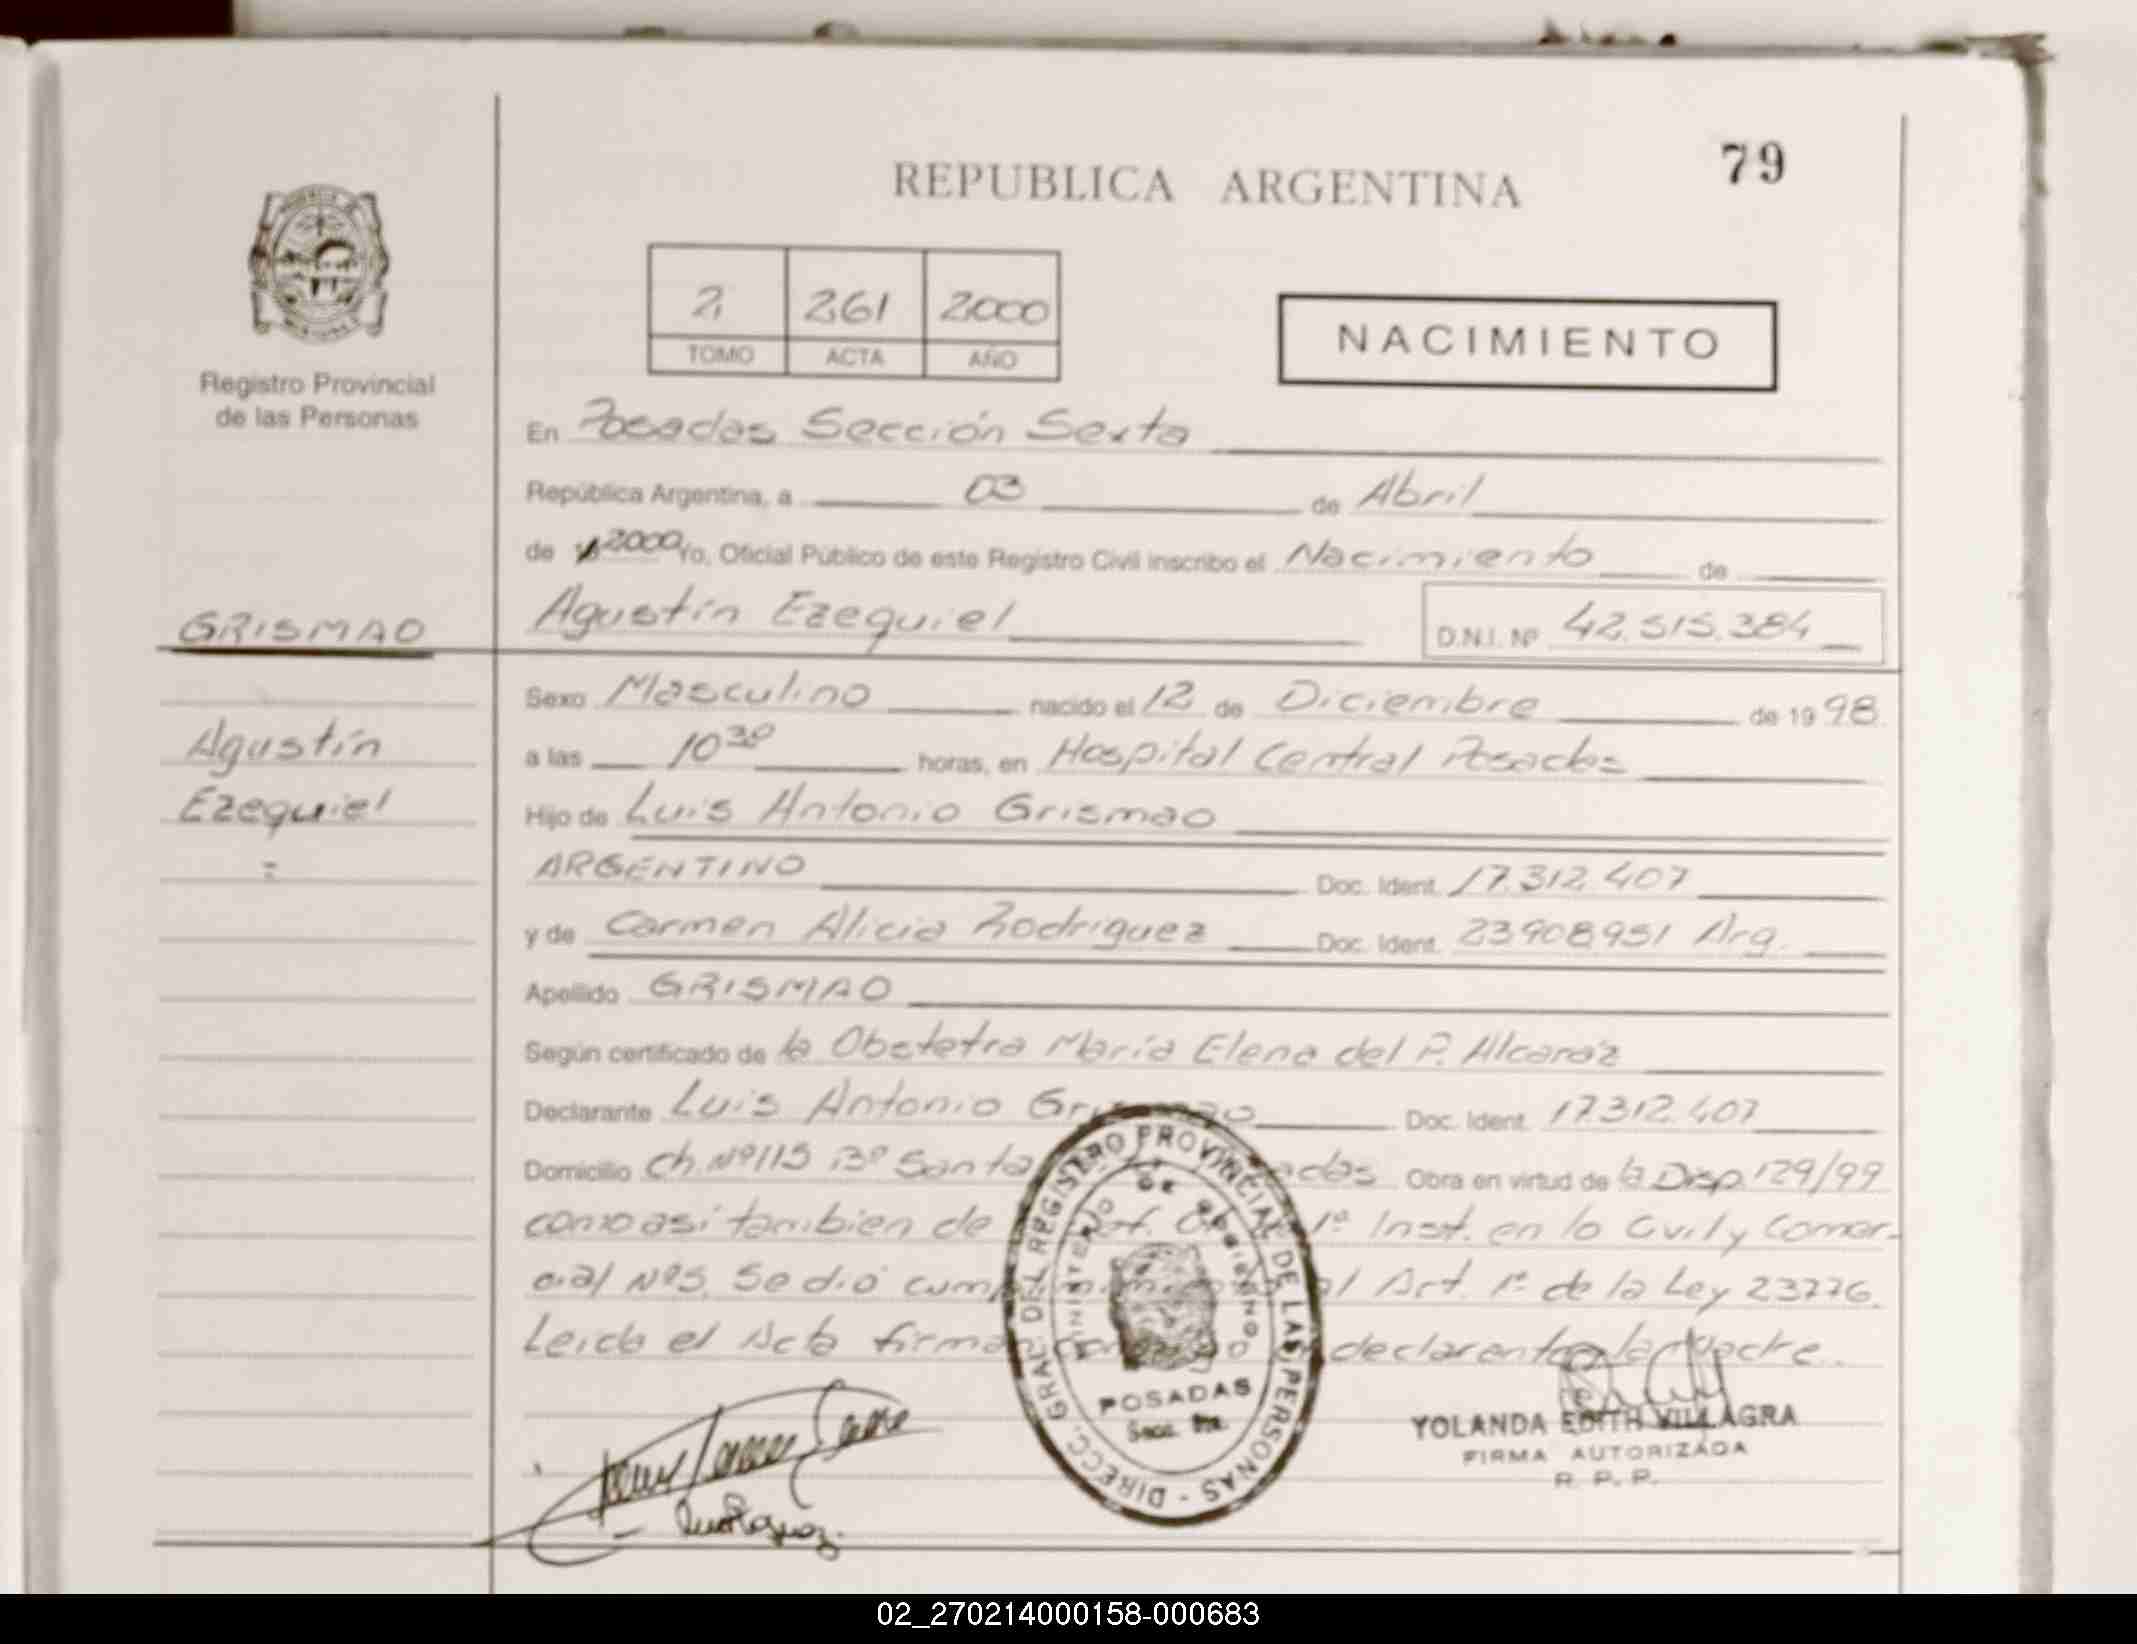 79
REPUBLICA ARGENTINA
2 261 2000
TOMO ACTA AÑO
NACIMIENTO
Registro Provincial
de las Personas
En Posadas Sección Sexta
República Argentina, a 03 de Abril
de 2000 Yo, Oficial Público de este Registro Civil inscribo el Nacimiento de
GRISMAO Agustín Ezequiel D.N.I. Nº 42.515.384
Sexo Masculino nacido el 12 de Diciembre de 1998.
Agustín a las 10 30 horas, en Hospital Central Posadas
Ezequiel Hijo de Luis Antonio Grismao
= ARGENTINO Doc. Ident. 17.312.407
y de Carmen Alicia Rodriguez Doc. Ident. 23908.951 Arg.
Apellido GRISMAO
Según certificado de la Obstetra María Elena del P. Alcaráz
Declarante Luis Antonio Doc. Ident. 17.312.407
Domicilio Ch. Nº 115 Bº Santa Obra en virtud de la Disp. 129/99
como asi tambien de 1ª Inst. en lo Civil y Comer-
cial Nº5. Se dió Art. 1º de la Ley 23776.
Leida el Acta declarante
DIRECC. GRAL. DEL REGISTRO PROVINCIAL DE LAS PERSONAS -
MINISTERIO DE GOBIERNO
POSADAS
Secc.
YOLANDA EDITH VILLAGRA
FIRMA AUTORIZADA
R. P. P.
02_270214000158-000683